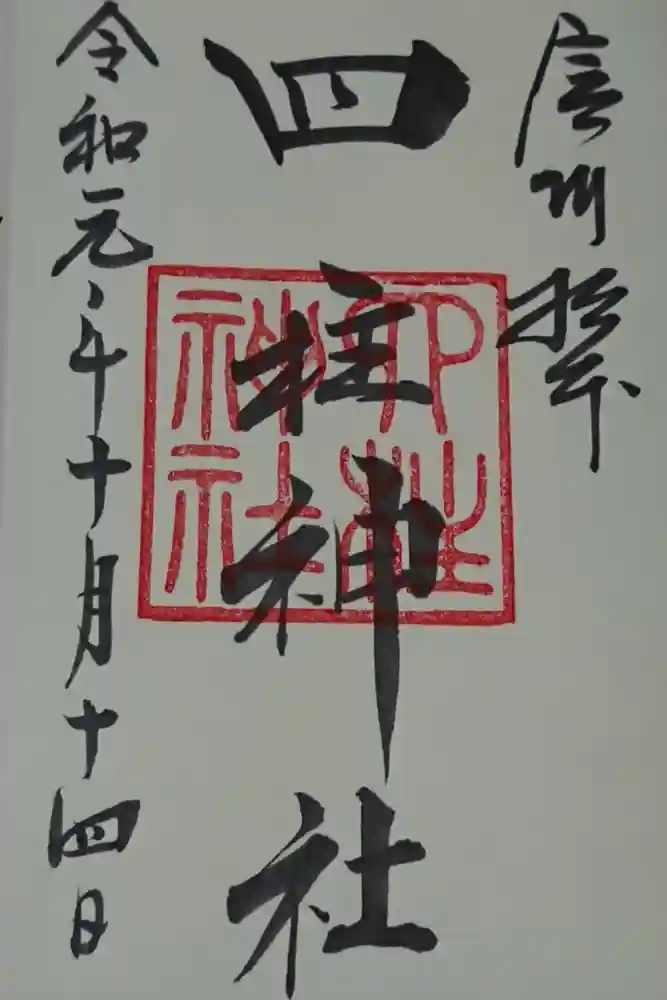 信州松本
四柱神社
令和元年十月十四日
神社